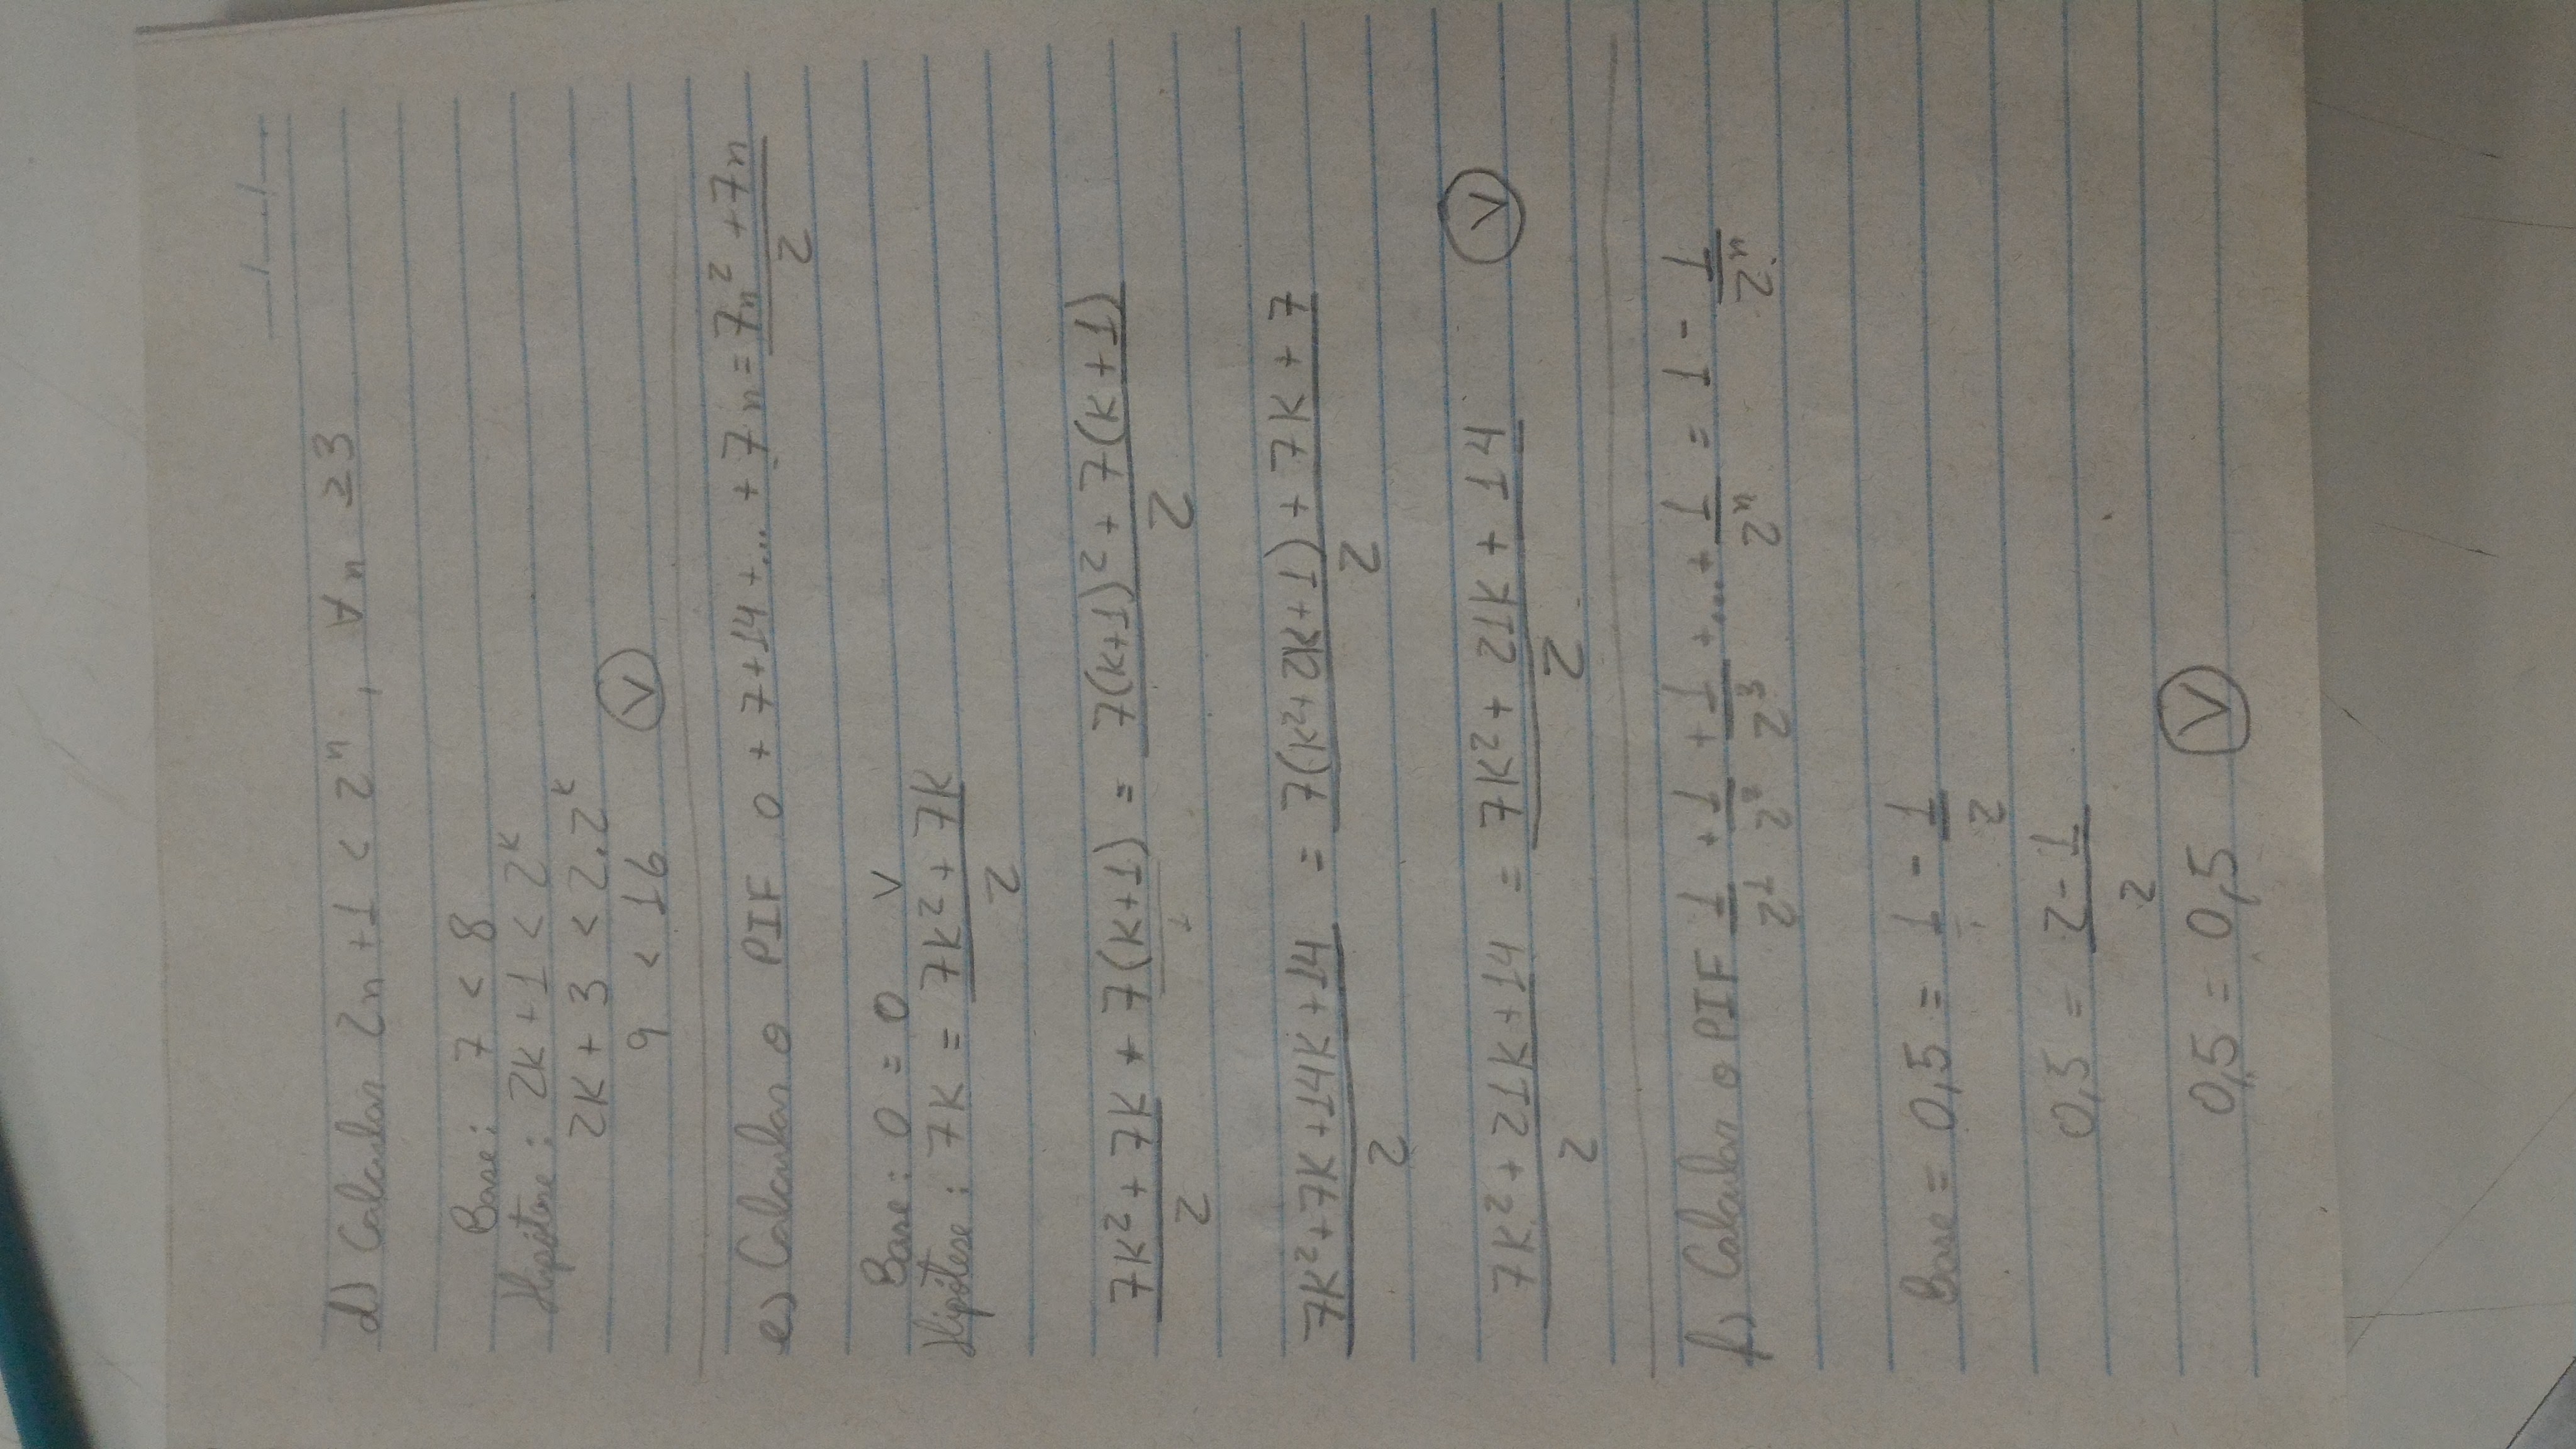 d) Calcular 2n + 1 < 2ⁿ, ∀n ≥3
Base: 7 < 8
Hipótese: 2K + 1 < 2ᴷ
2K + 3 < 2.2ᴷ
9 < 16 V
e) Calcular o PIF 0 + 7 + 14 + ... + 7n = (7n² + 7n)/2
Base: 0 = 0 V
Hipótese: 7K = (7K² + 7K)/2
(7K² + 7K)/2 + 7(K+1)/1 = (7(K+1)² + 7(K+1))/2
(7K² + 7K + 14K + 14)/2 = (7(K² + 2K + 1) + 7K + 7)/2
(7K² + 21K + 14)/2 = (7K² + 21K + 14)/2 V
f) Calcular o PIF 1/2¹ + 1/2² + 1/2³ + ... + 1/2ⁿ = 1 - 1/2ⁿ
Base = 0,5 = 1 - 1/2
0,5 = (2-1)/2
0,5 = 0,5 V